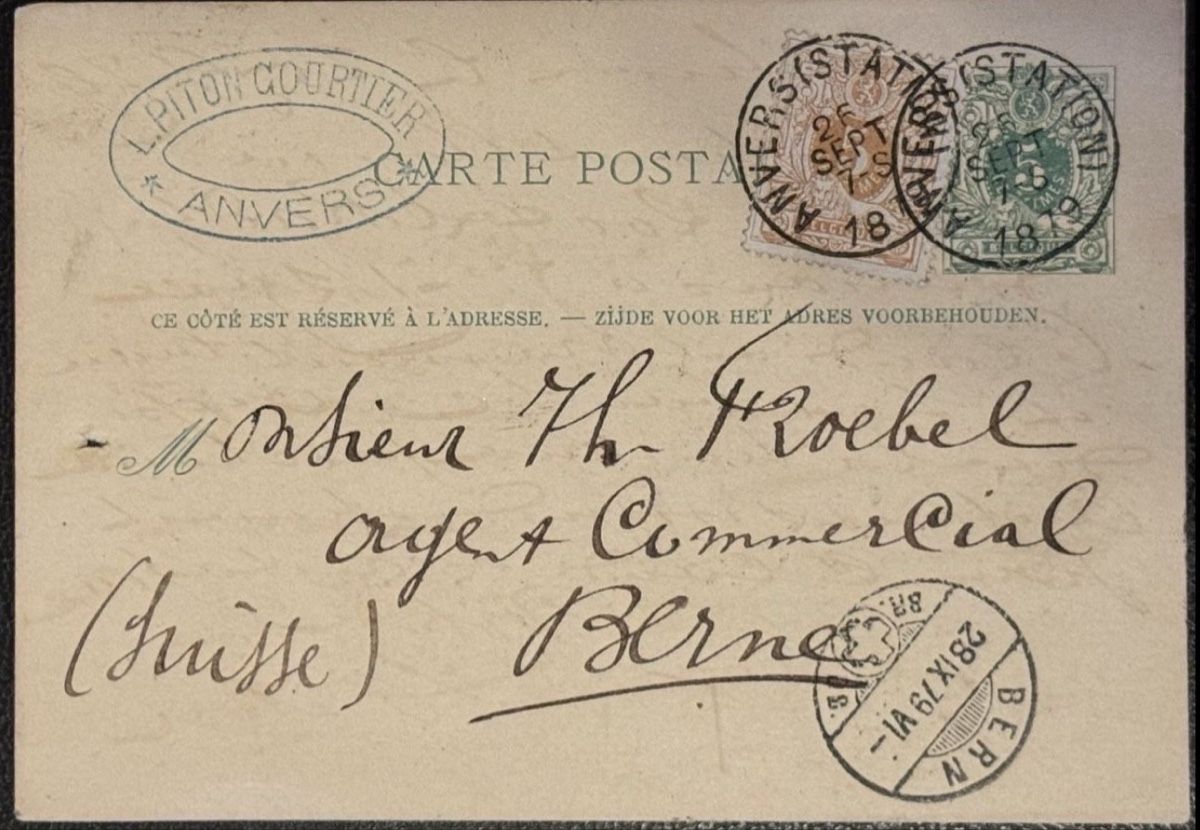 L. PITON COURTIER
* ANVERS *
CARTE POSTA
ANVERS (STATION)
SEPT
1879
ANVERS (STATION)
SEPT
1879
5
BELGIQUE
CE CÔTÉ EST RÉSERVÉ À L'ADRESSE. — ZIJDE VOOR HET ADRES VOORBEHOUDEN.
Monsieur Th Roebel
agent Commercial
(Suisse) Berne
28 IX 79 VI-
BERN